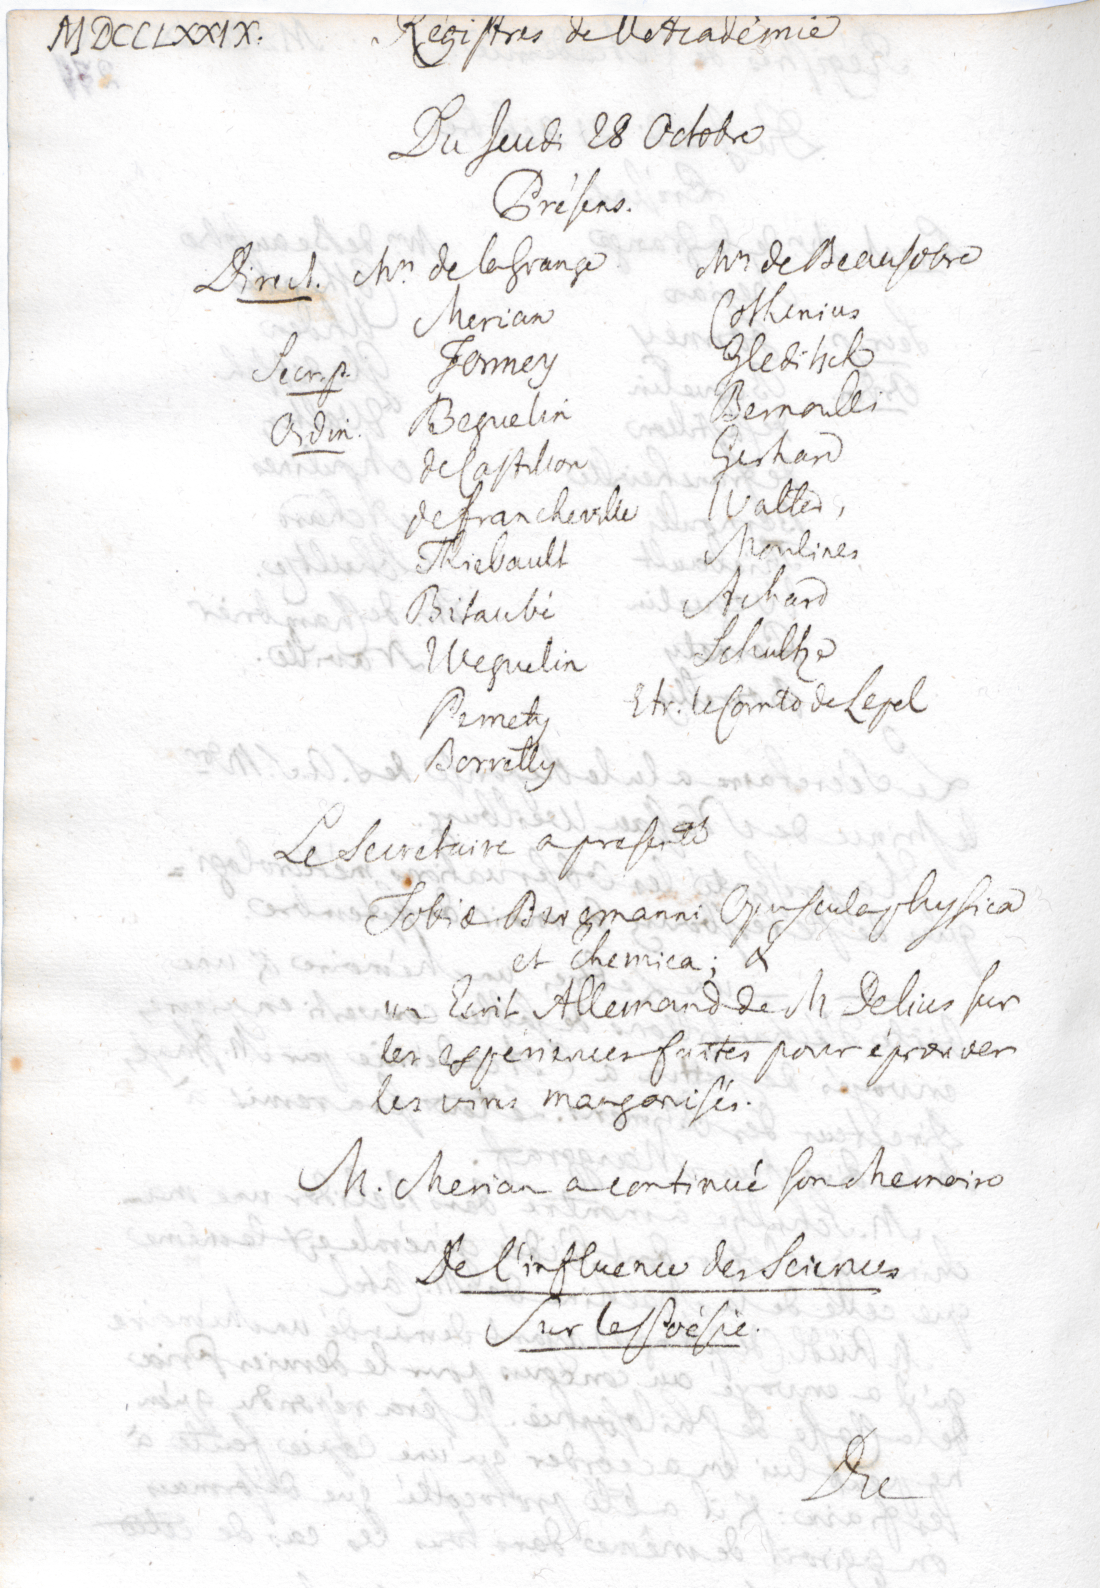 MDCCLXXIX. Registres de l'Academie
Du Jeudi 28 Octobre
Présens.
Direct. Mrs. de la Grange
Merian
Secr. p. Formey
Ordin. Beguelin
de Castillon
de Francheville
Thiebault
Bitaubé
Weguelin
Pernety
Borrelly
Mrs de Beausobre
Cothenius
Gleditsch
Bernoulli
Gerhard
Walter,
Moulines
Achard
Schultze
Etr. le Comte de Lepel
Le Secretaire a presenté
Tobiæ Bergmanni Opuscula physica
et Chemica; &
un Ecrit Allemand de M Delius sur
les expériences faites pour éprouver
les vins manganisés.
M. Merian a continué son Memoire
De l'influence des Sciences
Sur la Poésie.
De